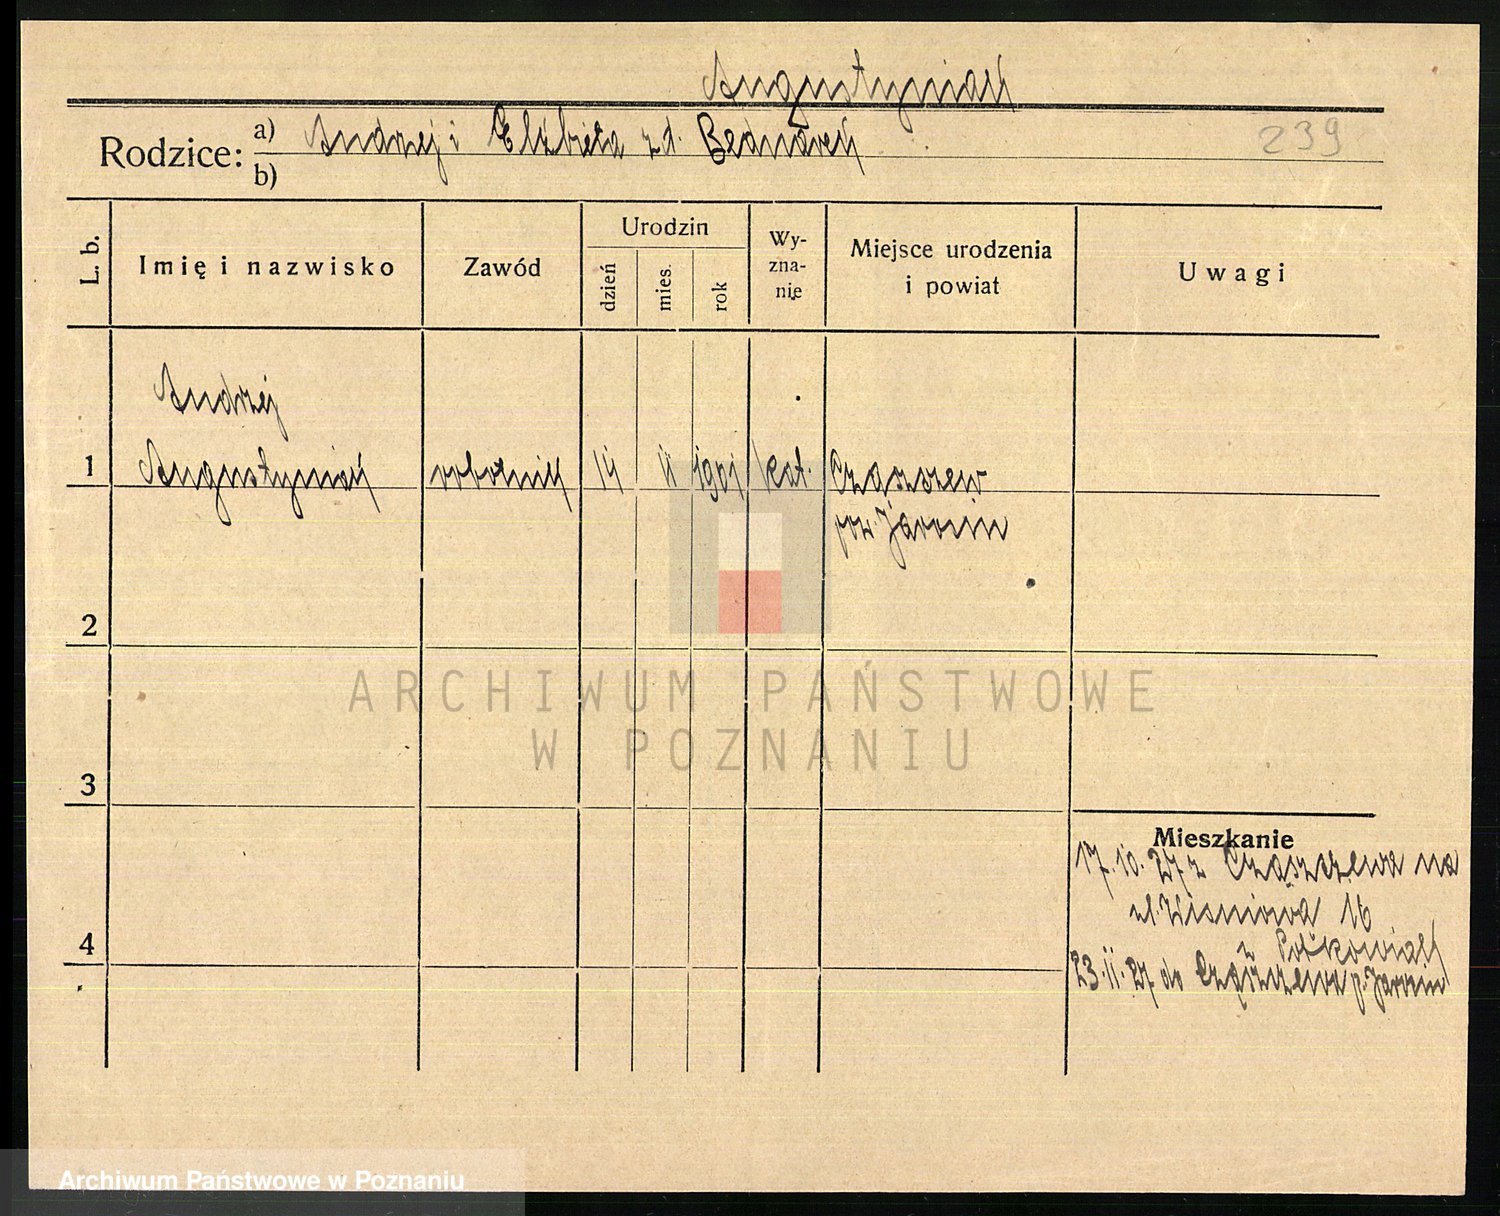 Augustyniak
Rodzice: a) Andrzej i Elżbieta z d. Bednarek
b)
239
L. b.
Imię i nazwisko
Zawód
Urodzin
dzień
mies.
rok
Wy-
zna-
nie
Miejsce urodzenia
i powiat
Uwagi
Andrzej
1 Augustyniak robotnik 14 II 1901 kat. Czaszczew
pow. Jarocin
2
3
4
Mieszkanie
17.10.27 z Czaszczewa na
ul. Wiśniowa 16
u
23.11.27 do Czaszczewa p. Jarocin
ARCHIWUM PAŃSTWOWE
W POZNANIU
Archiwum Państwowe w Poznaniu